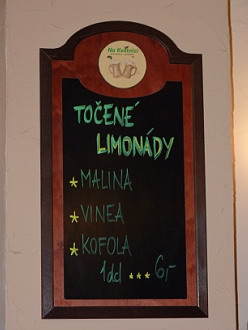 Na Kvalnici
TOČENÉ
LIMONÁDY
*MALINA
*VINEA
*KOFOLA
1dcl ... 6,-